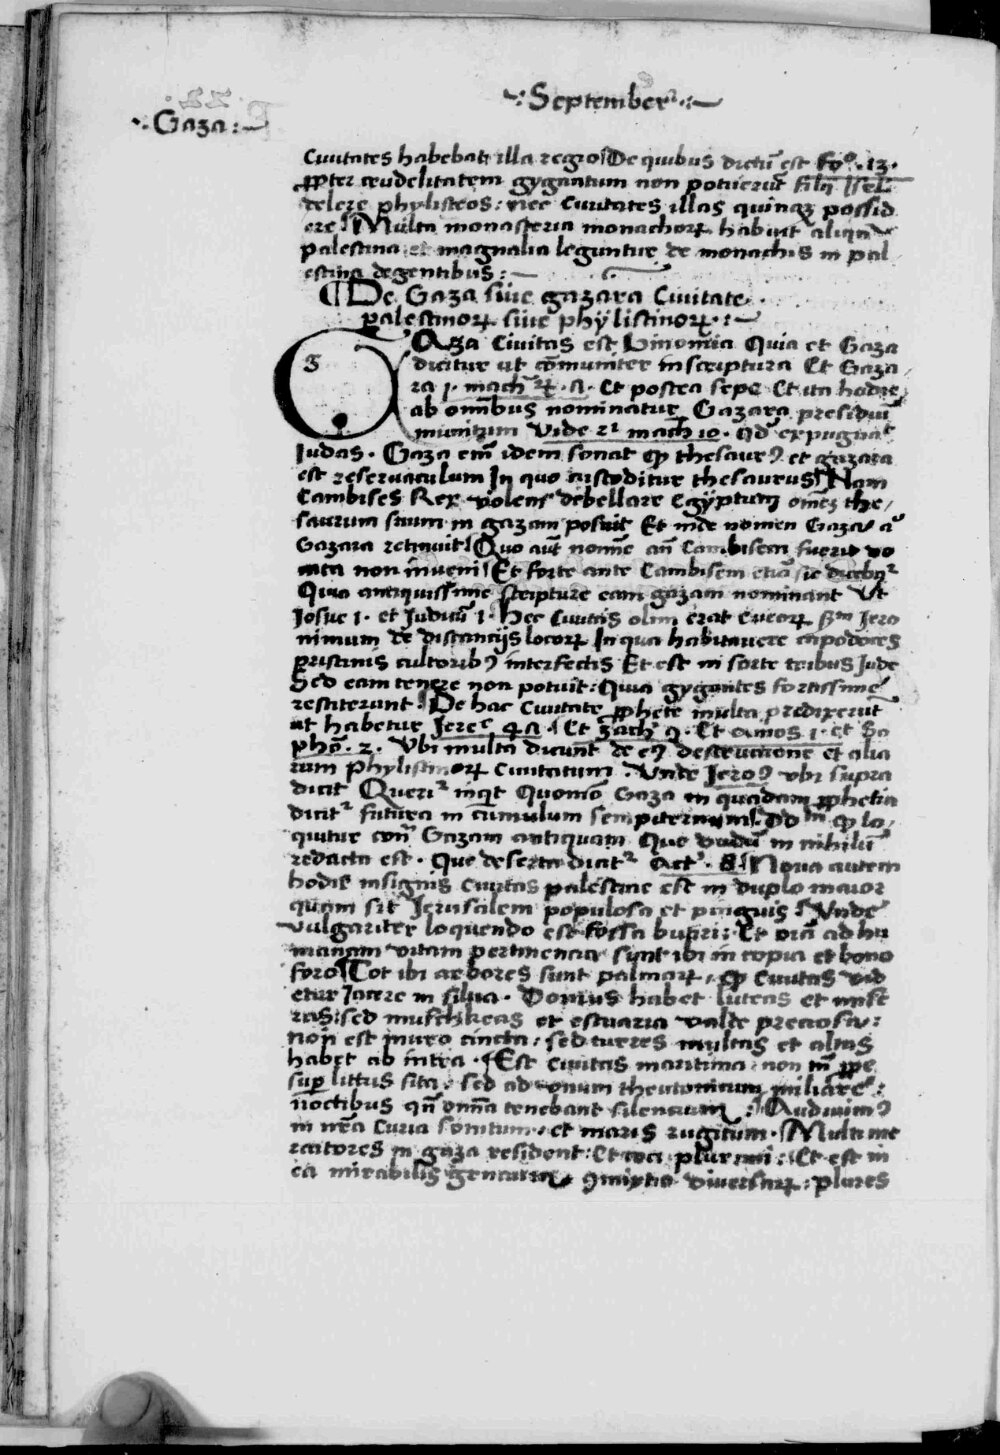 ·:September:·
·:Gaza:·
Ciuitates habebat illa regio De quibus dictū est fo° .13.
ꝓpter crudelitatem gygantum non potuerūt filij Isrl̄
delere phylisteos: nec Ciuitates illas quinqꝫ possid
ere Multa monasteria monachoꝝ habuit aliqn̄
palestina et magnalia leguntur de monachis in pal
estina degentibus:
¶ De Gaza siue gazara Ciuitate
palestinoꝝ siue phylistinoꝝ:
GAza Ciuitas est binomia Quia et Gaza
dicitur ut cōmuniter in scriptura Et Gaza
ra 1. mach 4. Et postea sepe Et ita hodie
ab omībus nominatur Gazara presidiū
munitum Vide 2 mach 10. qd̄ expugnat
Iudas. Gaza em̄ idem sonat ꝙ thesaurꝰ et gazara
est reseruaculum In quo custoditur thesaurus Nam
Cambises Rex volens debellare Egyptum omēꝫ the
saurum suum in gazam posuit Et inde nomen Gaza
Gazara retinuit Quo aut̄ nomīe an̄ Cambisem fuerit vo
cata non inueni Et forte ante Cambisem etiā sic dicebat᷑
Quia antiquissime scripture eam gazam nominant Ut
Iosue 1. et Iudicū 1. Hec Ciuitas olim erat Eueoꝝ Scdm Iero
nimum de distancijs locoꝝ In qua habitauere capodoces
pristinis cultoribꝰ interfectis Et est in sorte tribus Iude
Sed eam tenere non potuit: Quia gygantes fortissime
restiterunt De hac Ciuitate ꝓphete multa predixerūt
ut habetur Iere 47. Et zach 9. Et Amos 1. et So
pho. 2. Vbi multa dicunt de eiꝰ destructione et alia
rum Phylistinoꝝ Ciuitatum. Vnde Ieroꝰ vbi supra
dicit Querit᷑ inqͥt Quomō Gaza in quadam ꝓphetia
dicit᷑ futura in cumulum sempiternum ꝙ lo
quitur Gazam antiquam Que in nihilū
redacta est. Que deserta dicit᷑ Act. 8. Noua autem
hodie insignis Ciuitas palestine est in duplo maior
quam sit Ierusalem populosa et pinguis Vnde
vulgariter loquendo est fossa butiri: Et oīa ad hu
manam vitam pertinencia sunt ibi in copia et bono
foro Tot ibi arbores sunt palmaꝝ, ꝙ Ciuitas vid
etur Iacere in silua. Domus habet luteas et mise
ras: sed muschkeas et estuaria valde preciosa:
non est muro cincta: sed turres multas et altas
habet ab intra. Est Ciuitas maritima non tn̄ ꝓpe
sup littus sita. sed ad vnum theutonicum miliare:
noctibus qn̄ omīa tenebant silencium: Audiuimꝰ
in nr̄a Curia sonitum, et maris rugitum. Multi me
rcatores in gaza resident: Et plurimi: Et est in
ea mirabilis gencium ꝯmixtio diuersaꝝ: plures